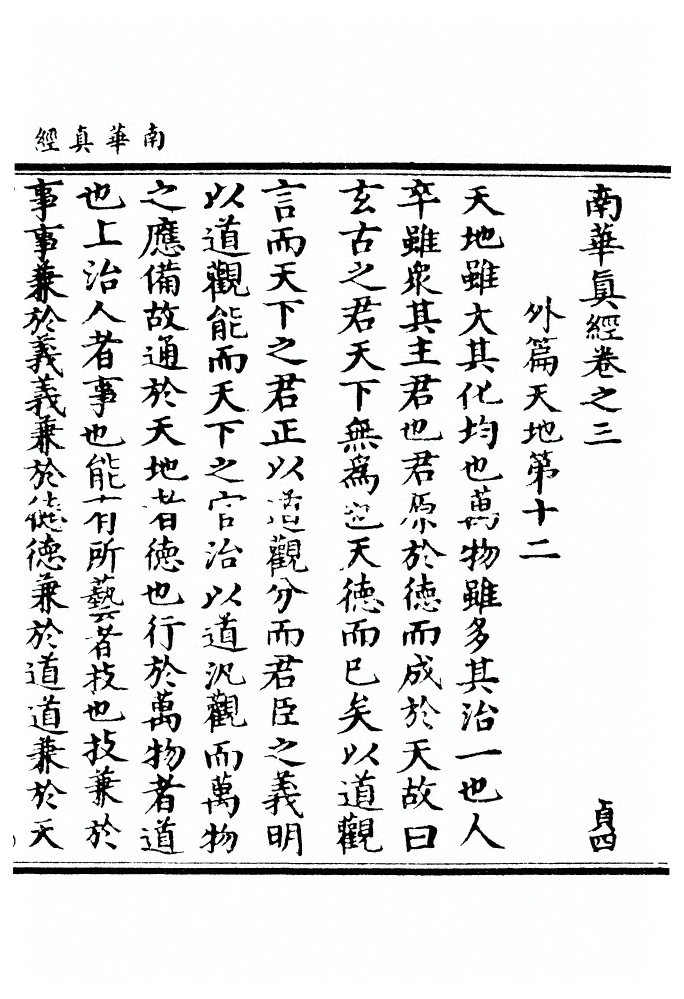 南華真經
南華眞經卷之三
貞四
外篇天地第十二
天地雖大其化均也萬物雖多其治一也人
卒雖衆其主君也君原於德而成於天故曰
玄古之君天下無爲也天德而已矣以道觀
言而天下之君正以道觀分而君臣之義明
以道觀能而天下之官治以道汎觀而萬物
之應備故通於天地者德也行於萬物者道
也上治人者事也能有所藝者技也技兼於
事事兼於義義兼於德德兼於道道兼於天